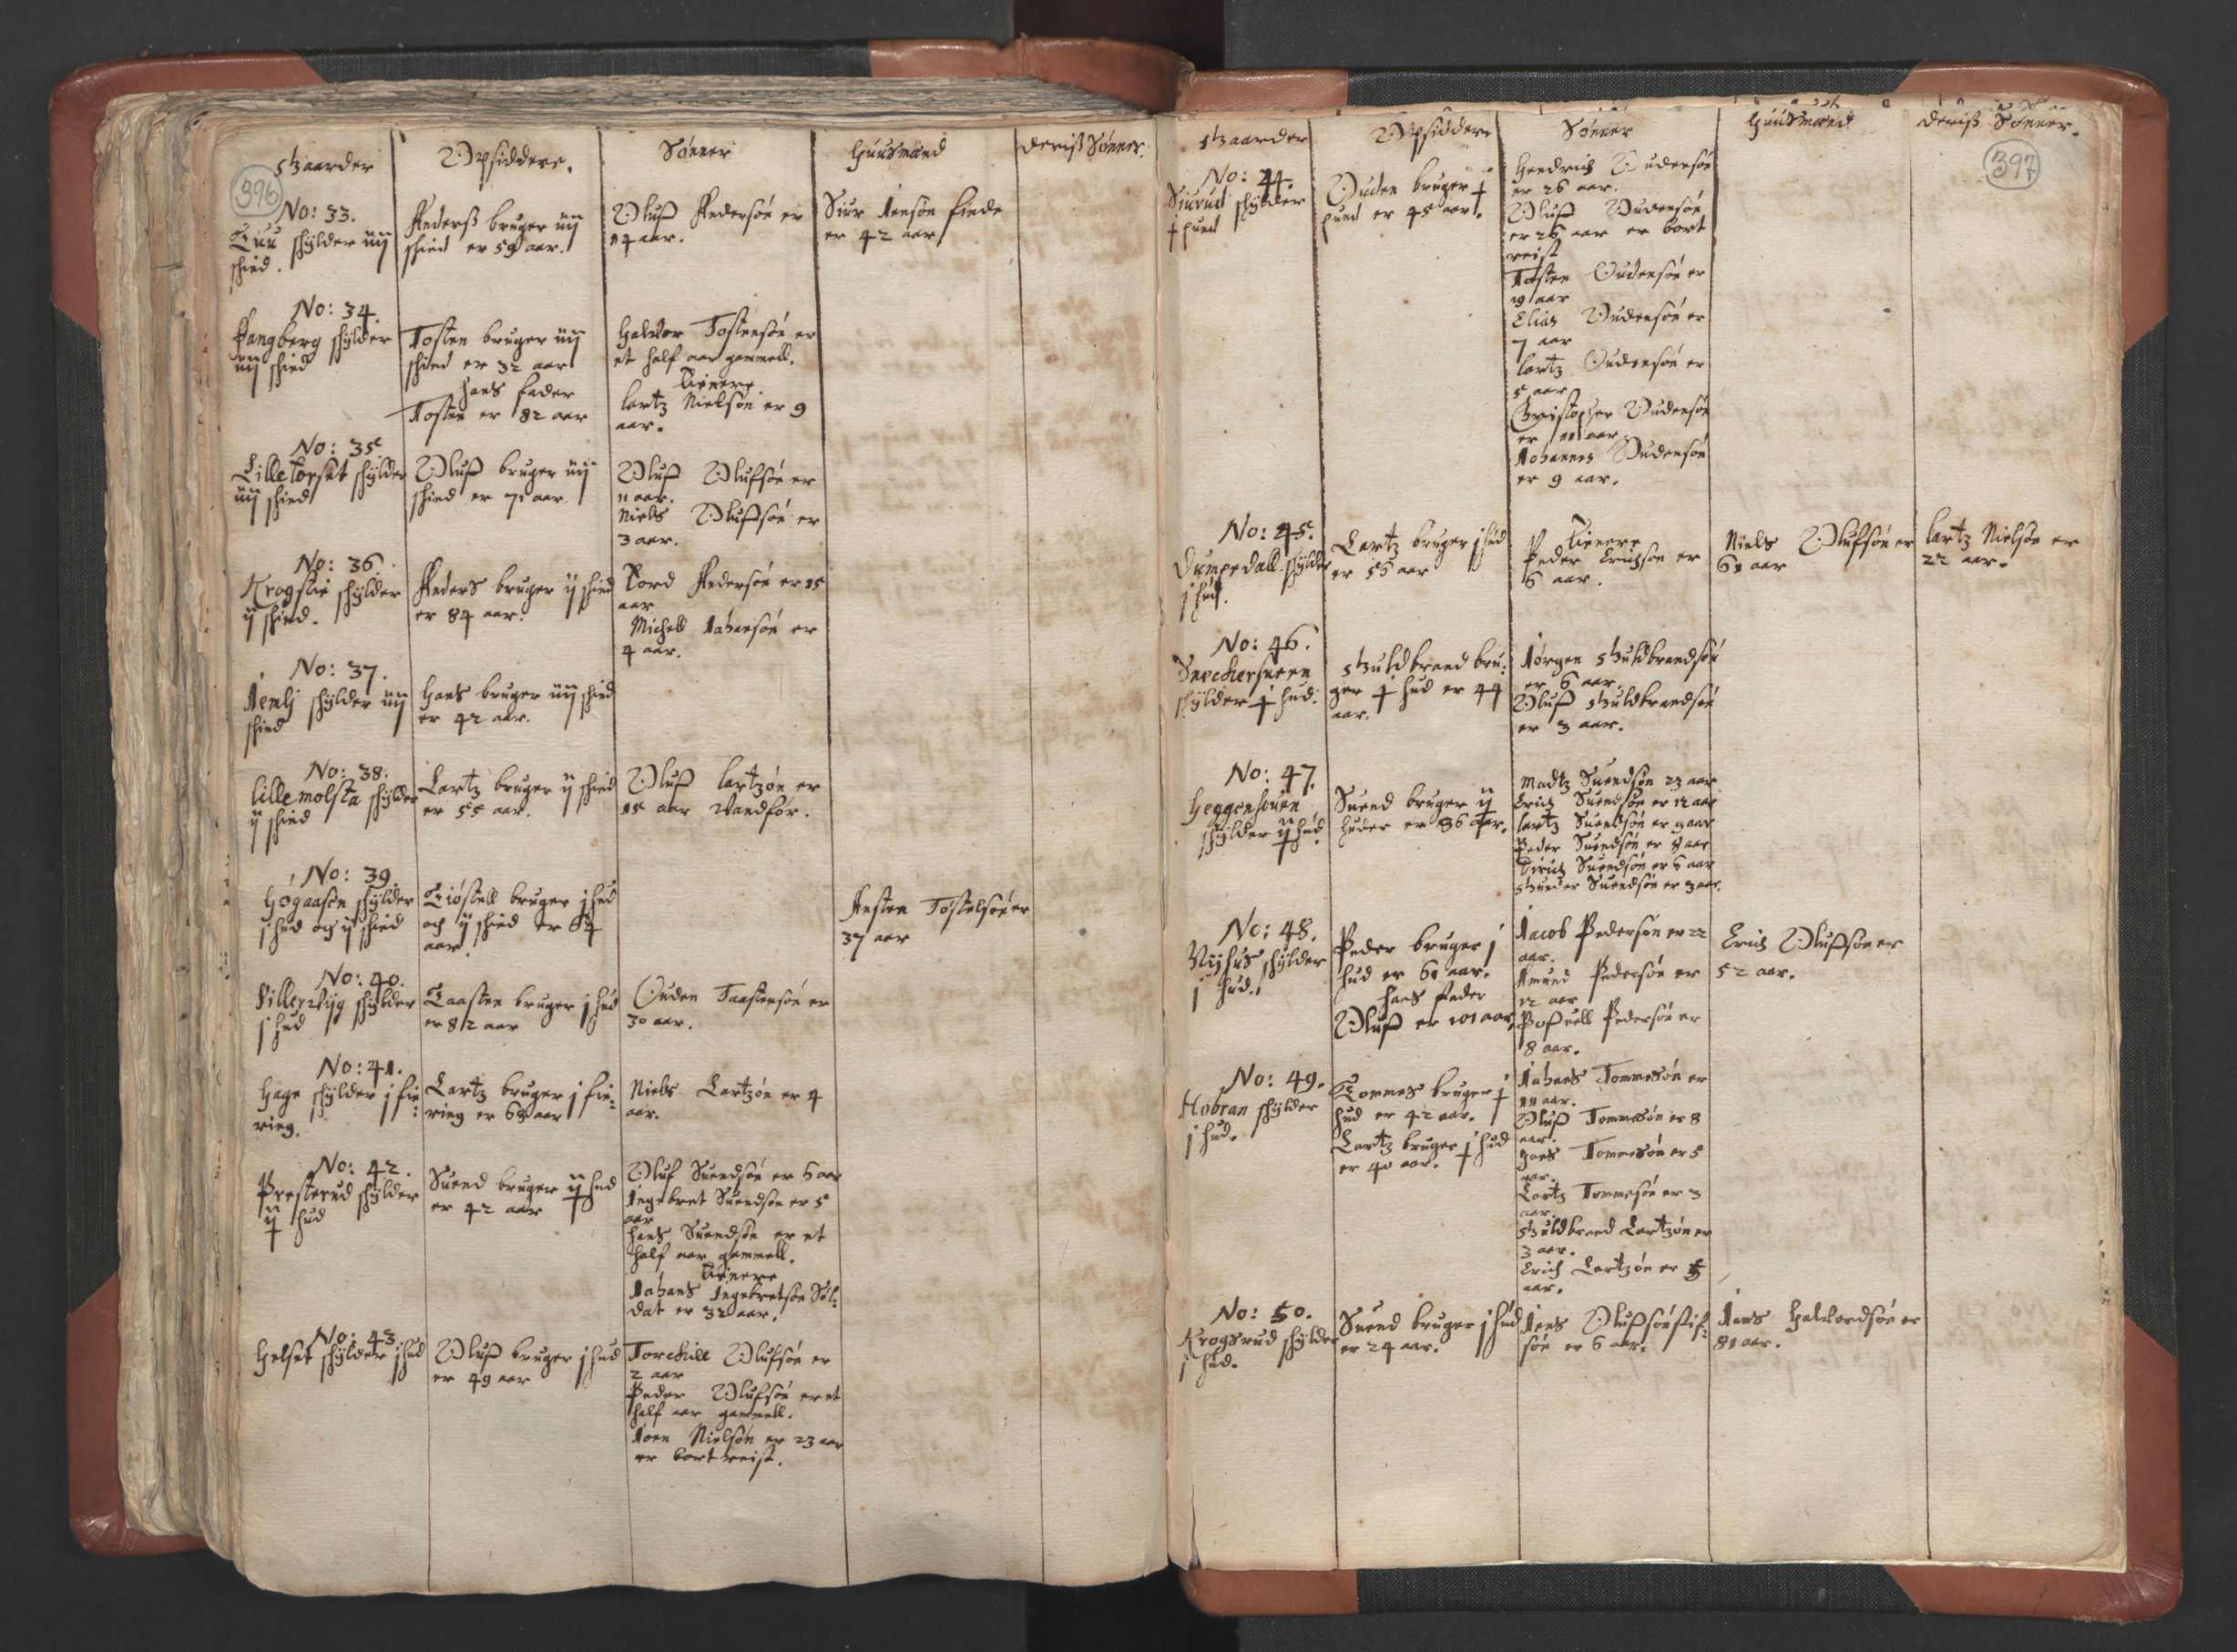 396
Gaarder
Opsiddere.
Sønner
Huusmænd
deriß Sønner.
No: 33.
schylder iiij
schind.
Anderß bruger iiij
schind er 59 aar.
Oluß Andersøn er
14 aar.
Siur Jensøn
er 42 aar
No: 34.
Fangberg schylder
iiij schind
Tosten bruger iiij
schind er 32 aar
hans fader
Tosten er 82 aar
Haluor Tostensøn er
et half aar gammell.
Tienere
Lartz Nielsøn er 9
aar.
No: 35.
Lille schylder
iiij schind
Oluß bruger iiij
schind er 71 aar
Oluß Olufsøn er
11 aar.
Niels Olußsøn er
3 aar.
No: 36.
Krogslie schylder
ij schind.
Anders bruger ij schind
er 84 aar.
Tord Andersøn er 15
aar
Michell Johansøn er
4 aar.
No: 37.
Jemlj schylder iiij
schind
Hans bruger iiij schind
er 42 aar.
No: 38.
Lille molsta schylder
ij schind
Lartz bruger ij schind
er 55 aar.
Oluß Lartzøn er
15 aar Vandfør.
No: 39.
Høgaasen schylder
j hud och ij schind
bruger j hud
och ij schind er 64
aar.
Asten Tostelsøn er
37 aar
No: 40.
schylder
j hud
Taasten bruger j hud
er 82 aar
Ouden Taastensøn er
30 aar.
No: 41.
Hage schylder j fie:
ring.
Lartz bruger j fie:
ring er 68 aar
Niels Lartzøn er 4
aar.
No: 42.
Presterud schylder
ij hud
Suend bruger ij hud
er 42 aar
Oluf Suendsøn er 6 aar
Ingebret Suendsøn er 5
aar
Hans Suendsøn er et
half aar gammell.
Tienere
Johans Ingebretsøn Sol:
dat er 32 aar.
No: 43.
Helset schylder j hud
Oluß bruger j hud
er 49 aar
Torchild Olufsøn er
2 aar
Peder Olufsøn er et
half aar gammell.
Joen Nielsøn er 23 aar
er bortreist.
397
Gaarder
Opsiddere
Sønner
Huusmænd
deriß Sønner.
No: 44.
Siurud schylder
pund
Ouden bruger
pund er 45 aar.
Hendrich Oudensøn
er 26 aar.
Oluß Oudensøn
er 26 aar er bort
reist
Tosten Oudensøn er
19 aar
Elias Oudensøn er
7 aar
Lartz Oudensøn er
5 aar
Christopher Oudensøn
er 11 aar
Johannes Oudensøn
er 9 aar.
No: 45.
Dumpedall schylder
j hud.
Lartz bruger j hud
er 56 aar
Tienere
Peder Erichsøn er
6 aar.
Niels Olufsøn er
61 aar
Lartz Nielsøn er
22 aar.
No: 46.
Snechersueen
schylder hud.
Guldbrand bru:
ger hud er 44
aar.
Jørgen Guldbrandsøn
er 6 aar.
Oluß Guldbrandsøn
er 3 aar.
No: 47.
Heggenhouen
schylder ij hud.
Suend bruger ij
huder er 86 aar.
Madtz Suendsøn 23 aar
Erich Suendsøn er 12 aar
Lartz Suendsøn er 9 aar
Peder Suendsøn er 8 aar
Dirich Suendsøn er 6 aar
Gunder Suendsøn er 3 aar.
No: 48.
Nyhus schylder
j hud.
Peder bruger j
hud er 61 aar.
hans fader
Oluß er 101 aar
Jacob Pedersøn er 22
aar.
Amund Pedersøn er
12 aar
Poßuell Pedersøn er
8 aar.
Erich Olußsøn er
52 aar.
No: 49.
Hobran schylder
j hud.
Tommes bruger
hud er 42 aar.
Lartz bruger hud
er 40 aar.
Johans Tommesøn er
11 aar.
Oluß Tommesøn er 8
aar.
Hans Tommesøn er 5
aar.
Lartz Tommesøn er 3
aar.
Guldbrand Lartzøn er
3 aar.
Erich Lartzøn er
aar.
No: 50.
Krogsrud schylder
j hud.
Suend bruger j hud
er 24 aar.
Jens Olußsøn stif:
søn er 6 aar.
Jens Haluordsøn er
81 aar.